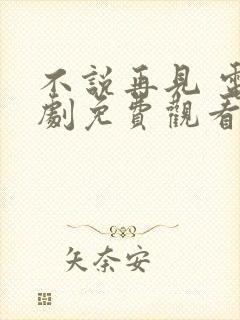 不說再見 電
劇免費觀看
矢奈安